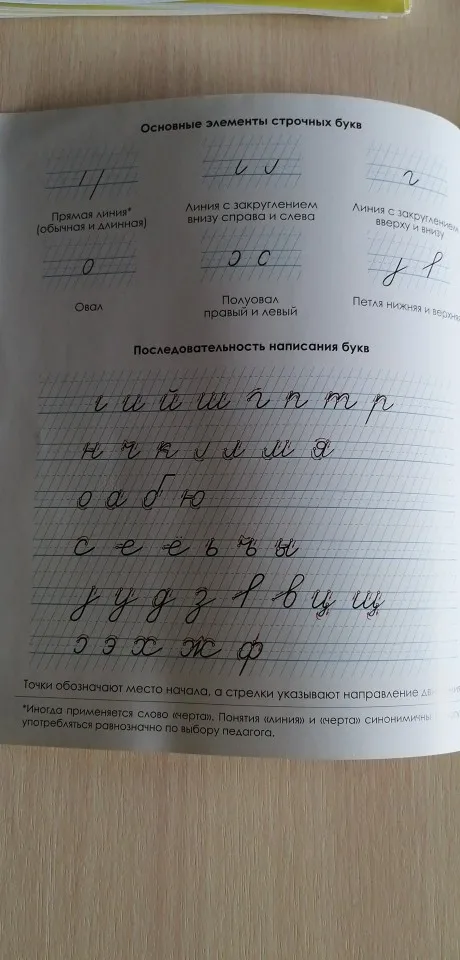 Основные элементы строчных букв
Прямая линия*
(обычная и длинная)
Линия с закруглением
внизу справа и слева
Линия с закруглением
вверху и внизу
о
с
Овал
Полуовал
правый и левый
Петля нижняя и верхняя
Последовательность написания букв
и й ш г п т р
н ч к л м я
о а б ю
с е ё ь ъ ы
у д з в ц щ
э х ж ф
Точки обозначают место начала, а стрелки указывают направление
*Иногда применяется слово «черта». Понятия «линия» и «черта» синонимичны
употребляться равнозначно по выбору педагога.